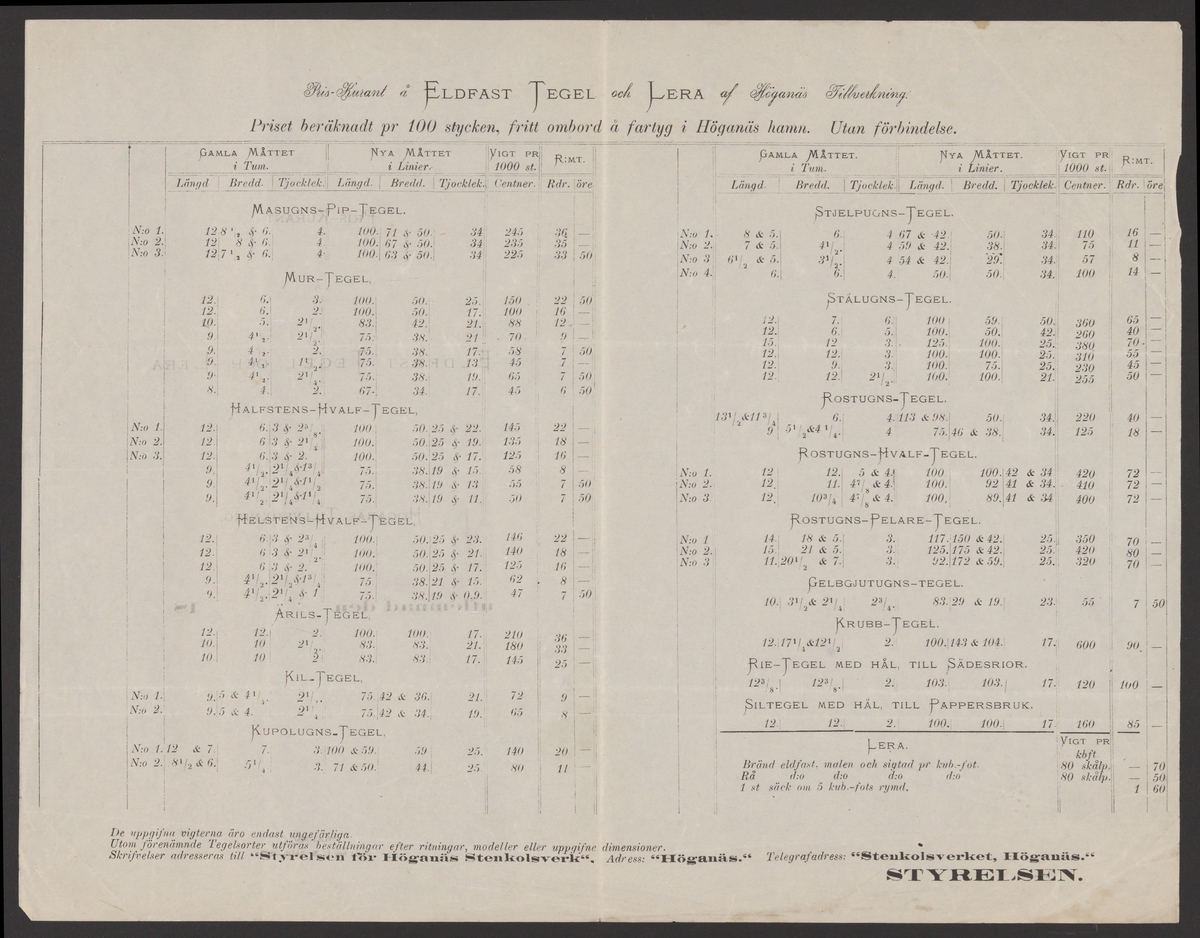 Pris-Kurant å ELDFAST TEGEL och LERA af Höganäs Tillverkning.
Priset beräknadt pr 100 stycken, fritt ombord å fartyg i Höganäs hamn. Utan förbindelse.
GAMLA MÅTTET i Tum. NYA MÅTTET i Linier. VIGT PR 1000 st. R:MT.
Längd Bredd. Tjocklek. Längd. Bredd. Tjocklek. Centner. Rdr. öre
MASUGNS-PIP-TEGEL.
N:o 1. 12. 8 1/2 & 6. 4. 100. 71 & 50. 34 245 36 —
N:o 2. 12. 8 & 6. 4. 100. 67 & 50. 34 235 35 —
N:o 3. 12. 7 1/2 & 6. 4. 100. 63 & 50. 34 225 33 50
MUR-TEGEL.
12. 6. 3. 100. 50. 25. 150 22 50
12. 6. 2. 100. 50. 17. 100 16 —
10. 5. 2 1/2. 83. 42. 21. 88 12 —
9. 4 1/2. 2 1/2. 75. 38. 21 70 9 —
9. 4 1/2. 2. 75. 38. 17. 58 7 50
9. 4 1/2. 1 1/2. 75. 38. 13 45 7 —
9. 4 1/2. 2 1/4. 75. 38. 19. 65 7 50
8. 4. 2. 67. 34. 17. 45 6 50
HALFSTENS-HVALF-TEGEL.
N:o 1. 12. 6. 3 & 2 5/8. 100. 50. 25 & 22. 145 22 —
N:o 2. 12 6 3 & 2 1/4 100. 50. 25 & 19. 135 18 —
N:o 3. 12. 6. 3 & 2. 100. 50. 25 & 17. 125 16 —
9. 4 1/2. 2 1/4 & 1 3/4 75. 38. 19 & 15. 58 8 —
9. 4 1/2. 2 1/4 & 1 1/2 75. 38. 19 & 13 55 7 50
9. 4 1/2 2 1/4 & 1 1/4 75. 38. 19 & 11. 50 7 50
HELSTENS-HVALF-TEGEL.
12. 6. 3 & 2 3/4 100. 50. 25 & 23. 146 22 —
12. 6. 3 & 2 1/2. 100. 50. 25 & 21. 140 18 —
12 6 3 & 2. 100. 50. 25 & 17. 125 16 —
9. 4 1/2. 2 1/2 & 1 3/4 75. 38. 21 & 15. 62 8 —
9. 4 1/2. 2 1/4 & 1 75. 38. 19 & 0,9. 47 7 50
ÄRILS-TEGEL.
12. 12. 2. 100. 100. 17. 210 36 —
10. 10 2 1/2. 83. 83. 21. 180 33 —
10 10 2 83. 83. 17. 145 25 —
KIL-TEGEL.
N:o 1. 9. 5 & 4 1/4. 2 1/2. 75. 42 & 36. 21. 72 9 —
N:o 2. 9. 5 & 4. 2 1/4 75. 42 & 34. 19. 65 8 —
KUPOLUGNS-TEGEL.
N:o 1. 12 & 7. 7. 3. 100 & 59. 59 25. 140 20 —
N:o 2. 8 1/2 & 6. 5 1/4 3. 71 & 50. 44. 25 80 11 —
GAMLA MÅTTET. i Tum. NYA MÅTTET. i Linier. VIGT PR 1000 st. R:MT.
Längd. Bredd. Tjocklek Längd. Bredd. Tjocklek Centner. Rdr. öre
STJELPUGNS-TEGEL.
N:o 1. 8 & 5. 6. 4 67 & 42. 50. 34. 110 16 —
N:o 2. 7 & 5. 4 1/2. 4 59 & 42. 38. 34. 75 11 —
N:o 3 6 1/2 & 5. 3 1/2. 4 54 & 42. 29. 34. 57 8 —
N:o 4. 6. 6. 4. 50. 50. 34. 100 14 —
STÅLUGNS-TEGEL.
12. 7. 6. 100 59. 50. 360 65 —
12. 6. 5. 100. 50. 42. 260 40 —
15. 12 3. 125. 100. 25. 380 70 —
12. 12. 3. 100. 100. 25. 310 55 —
12. 9 3. 100. 75. 25. 230 45 —
12. 12. 2 1/2. 100. 100. 21. 255 50 —
ROSTUGNS-TEGEL.
13 1/2 & 11 3/4 6. 4. 113 & 98. 50. 34. 220 40 —
9 5 1/2 & 4 1/4. 4 75. 46 & 38. 34. 125 18 —
ROSTUGNS-HVALF-TEGEL.
N:o 1. 12 12. 5 & 4. 100 100. 42 & 34 420 72 —
N:o 2. 12. 11. 4 7/8 & 4. 100. 92 41 & 34. 410 72 —
N:o 3. 12. 10 3/4 4 7/8 & 4. 100. 89. 41 & 34 400 72 —
ROSTUGNS-PELARE-TEGEL.
N:o 1 14. 18 & 5. 3. 117. 150 & 42. 25. 350 70 —
N:o 2. 15. 21 & 5. 3. 125. 175 & 42. 25. 420 80 —
N:o 3 11. 20 1/2 & 7. 3. 92. 172 & 59. 25. 320 70 —
GELBGJUTUGNS-TEGEL.
10. 3 1/2 & 2 1/4 2 3/4. 83. 29 & 19. 23. 55 7 50
KRUBB-TEGEL.
12. 17 1/4 & 12 1/2 2. 100. 143 & 104. 17. 600 90 —
RIE-TEGEL MED HÅL, TILL SÄDESRIOR.
12 3/8. 12 3/8. 2. 103. 103. 17. 120 100 —
SILTEGEL MED HÅL, TILL PAPPERSBRUK.
12. 12. 2. 100. 100. 17 160 85 —
LERA. VIGT PR kbft
Bränd eldfast, malen och sigtad pr kub.-fot. 80 skålp. — 70
Rå d:o d:o d:o d:o 80 skålp. — 50
1 st säck om 5 kub.-fots rymd. 1 60
De uppgifna vigterna äro endast ungefärliga.
Utom förenämnde Tegelsorter utföras beställningar efter ritningar, modeller eller uppgifne dimensioner.
Skrifvelser adresseras till "Styrelsen för Höganäs Stenkolsverk", Adress: "Höganäs." Telegrafadress: "Stenkolsverket, Höganäs."
STYRELSEN.